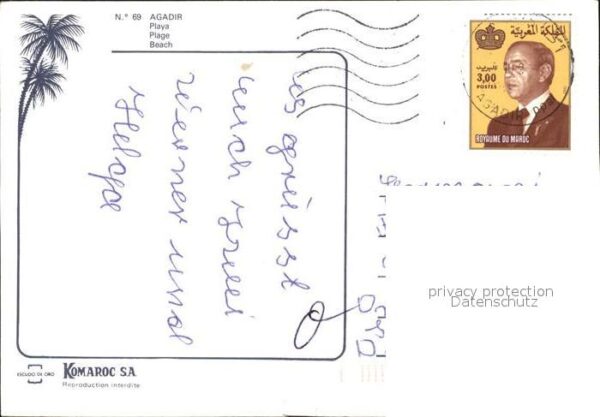 N.° 69 AGADIR
Playa
Plage
Beach
المملكة المغربية
3,00
POSTES
ROYAUME DU MAROC
AGADIR
es grüsst
euch
Werner und
Helga
privacy protection
Datenschutz
ESCUDO DE ORO
KOMAROC S.A.
Reproduction interdite